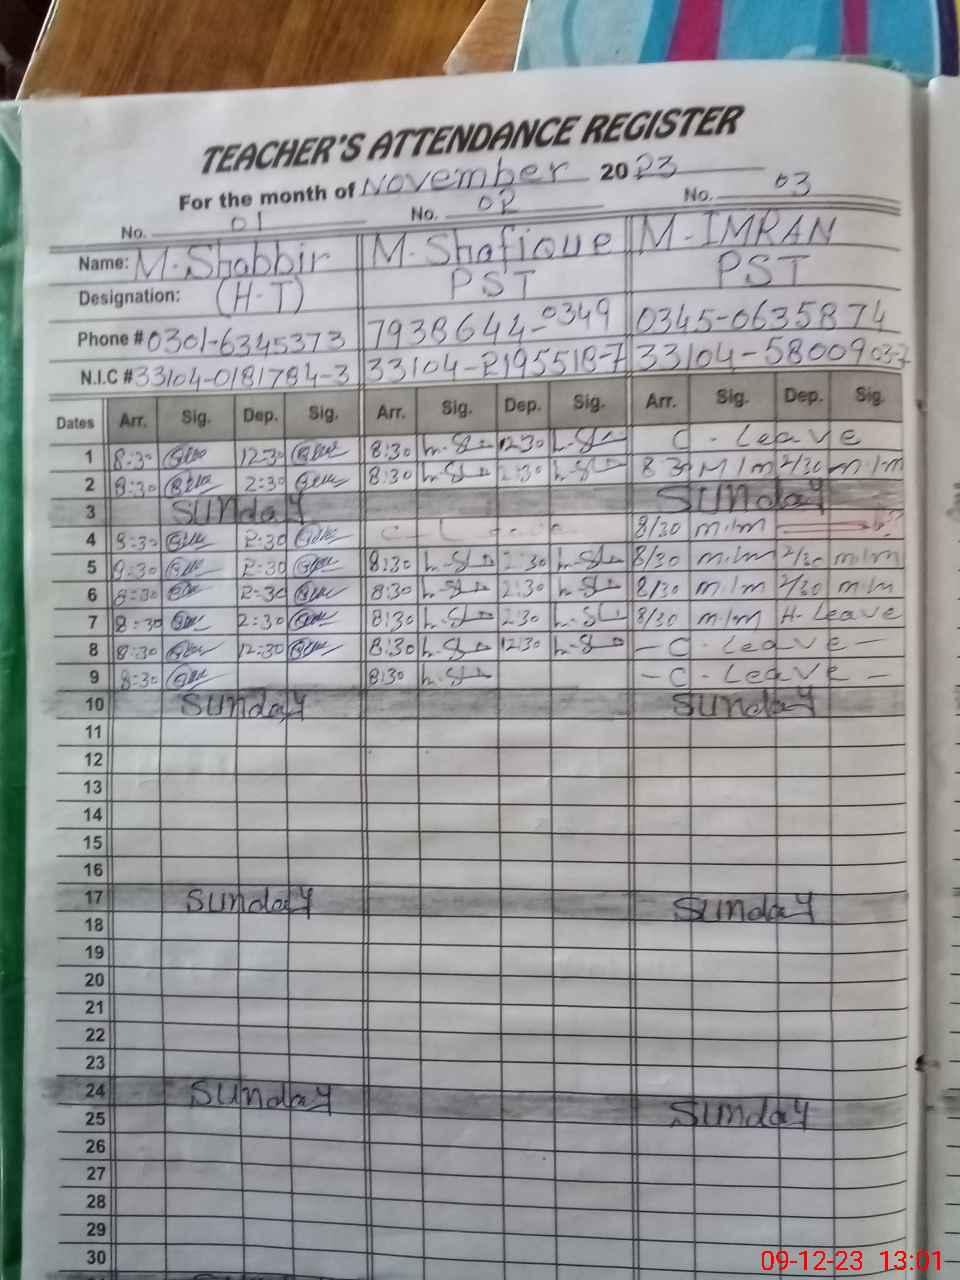 TEACHER'S ATTENDANCE REGISTER
For the month of November 2023
No. 01 No. 02 No. 03
Name: M.Shabbir M.Shafique M.IMRAN
Designation: (H.T) PST PST
Phone # 0301-6345373 7938644-0349 0345-0635874
N.I.C # 33104-0181784-3 33104-2195518-7 33104-5800903-7
Dates Arr. Sig. Dep. Sig. Arr. Sig. Dep. Sig. Arr. Sig. Dep. Sig.
1 8:30 12:30 8:30 12:30 C. Leave
2 8:30 2:30 8:30 2:30 8 30 M/m 2/30 m.lm
3 Sunday Sunday
4 8:30 2:30 8/30 m.lm
5 8:30 2:30 8:30 2:30 8/30 m.lm 2/30 m.lm
6 8:30 2:30 8:30 2:30 8/30 m.lm 2/30 m.lm
7 8:30 2:30 8:30 2:30 8/30 m.lm H-Leave
8 8:30 12:30 8:30 12:30 -C. Leave-
9 8:30 8:30 -C. Leave-
10 Sunday Sunday
11
12
13
14
15
16
17 Sunday Sunday
18
19
20
21
22
23
24 Sunday
25 Sunday
26
27
28
29
30
09-12-23 13:01